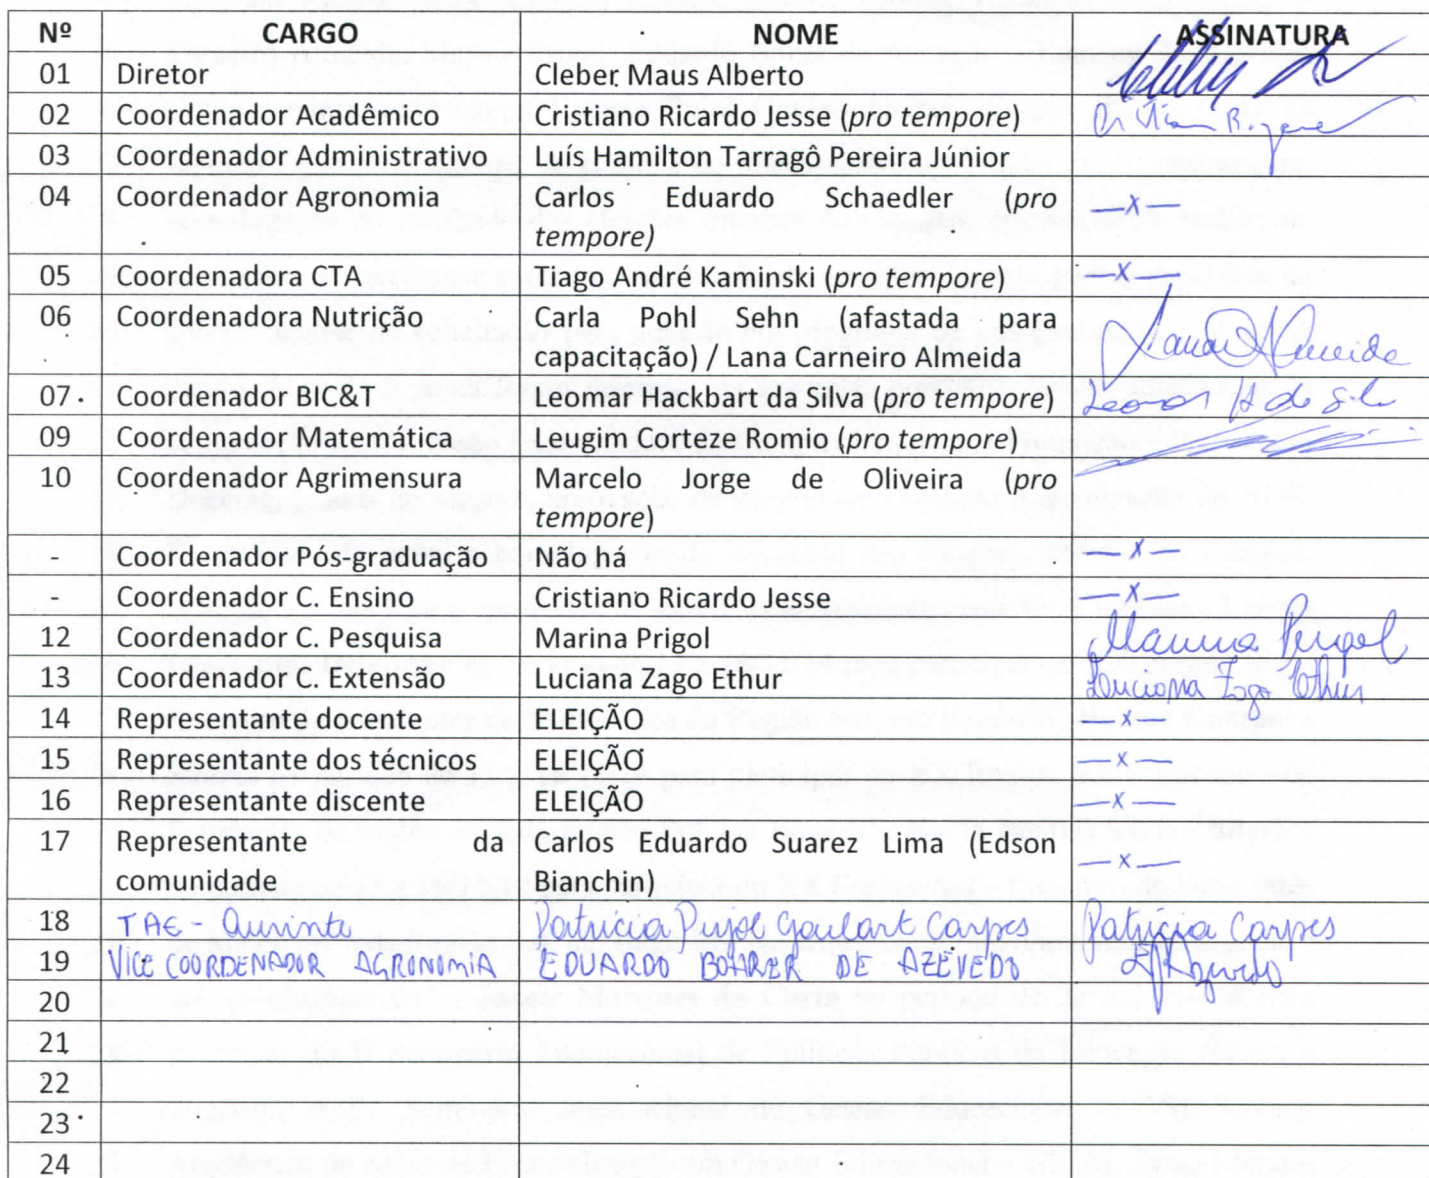 Nº CARGO NOME ASSINATURA
01 Diretor Cleber Maus Alberto
02 Coordenador Acadêmico Cristiano Ricardo Jesse (pro tempore)
03 Coordenador Administrativo Luís Hamilton Tarragô Pereira Júnior
04 Coordenador Agronomia Carlos Eduardo Schaedler (pro —x—
tempore)
05 Coordenadora CTA Tiago André Kaminski (pro tempore) —x—
06 Coordenadora Nutrição Carla Pohl Sehn (afastada para
capacitação) / Lana Carneiro Almeida Lana Almeida
07 Coordenador BIC&T Leomar Hackbart da Silva (pro tempore) Leomar H da Silva
09 Coordenador Matemática Leugim Corteze Romio (pro tempore)
10 Coordenador Agrimensura Marcelo Jorge de Oliveira (pro
tempore)
- Coordenador Pós-graduação Não há —x—
- Coordenador C. Ensino Cristiano Ricardo Jesse —x—
12 Coordenador C. Pesquisa Marina Prigol Marina Prigol
13 Coordenador C. Extensão Luciana Zago Ethur Luciana Zago Ethur
14 Representante docente ELEIÇÃO —x—
15 Representante dos técnicos ELEIÇÃO —x—
16 Representante discente ELEIÇÃO —x—
17 Representante da Carlos Eduardo Suarez Lima (Edson —x—
comunidade Bianchin)
18 TAE - Ouvinte Patrícia Pujol Goulart Carpes Patrícia Carpes
19 VICE COORDENADOR AGRONOMIA EDUARDO BOHRER DE AZEVEDO
20
21
22
23
24